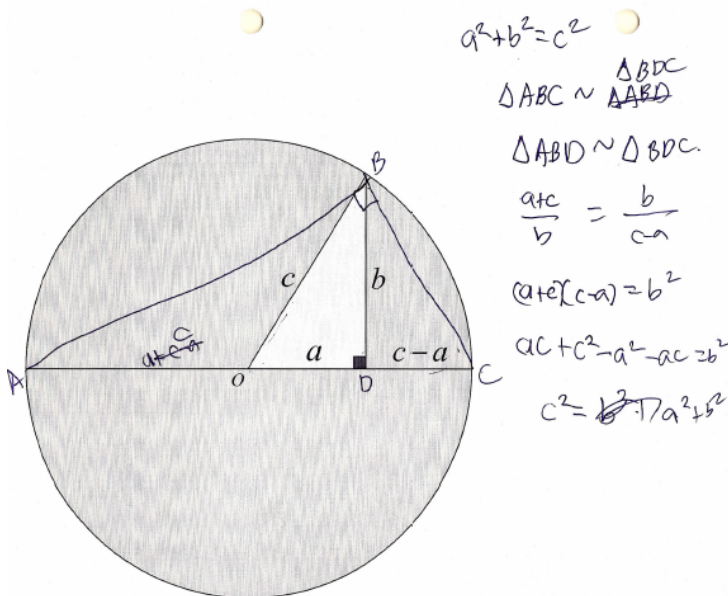 a²+b²=c²
ΔBDC
ΔABC ~ ΔABD
ΔABD ~ ΔBDC.
a+c / b = b / c-a
(a+c)(c-a) = b²
ac+c²-a²-ac = b²
c² = a²+b²
B
c
b
c
a+c-a
a
c − a
A
O
D
C